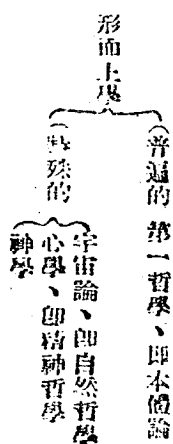 形而上學
(普遍的 第一哲學、即本體論
(特殊的
宇宙論、即自然哲學
心學、即精神哲學
神學